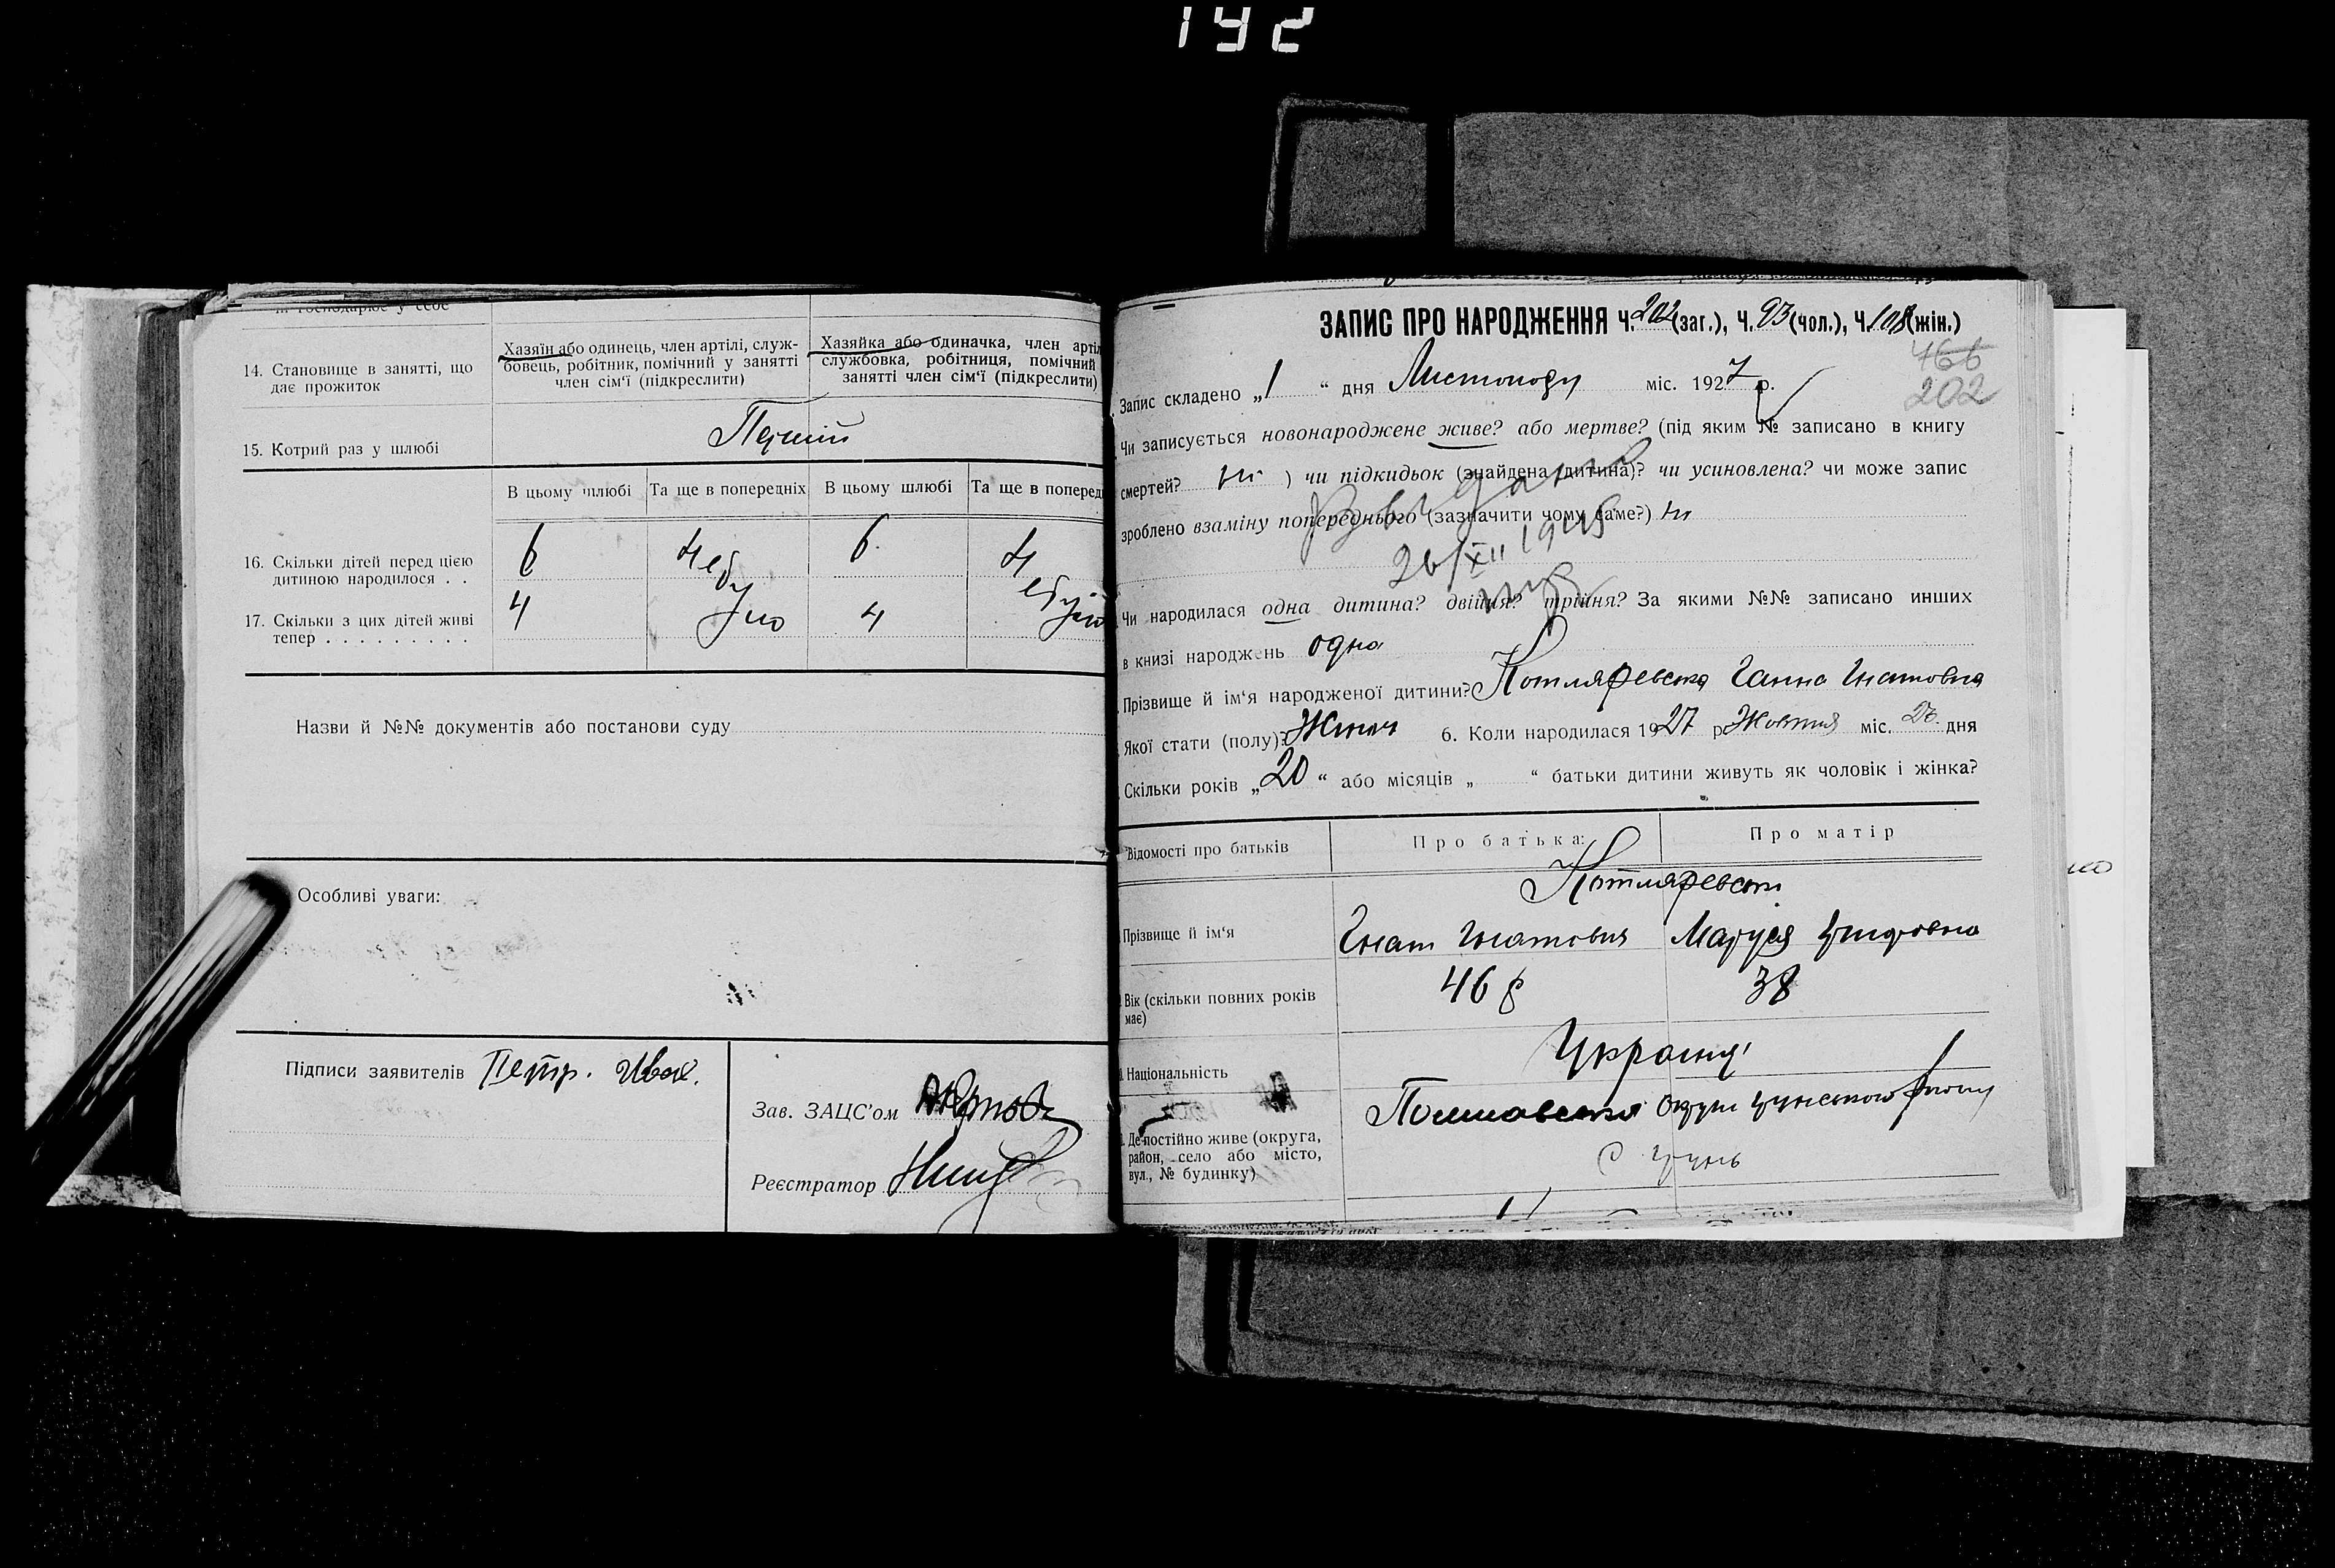 192
14. Становище в занятті, що дає прожиток
Хазяїн або одинець, член артілі, служ-
бовець, робітник, помічний у занятті
член сім'ї (підкреслити)
Хазяйка або одиначка, член артіл
службовка, робітниця, помічний
занятті член сім'ї (підкреслити)
15. Котрий раз у шлюбі
Перший
В цьому шлюбі Та ще в попередніх В цьому шлюбі Та ще в поперед
16. Скільки дітей перед цією
дитиною народилося . .
6 6
17. Скільки з цих дітей живі
тепер . . . . . . . . .
4 4
Назви й №№ документів або постанови суду
Особливі уваги:
Підписи заявителів Петр. Ивах.
Зав. ЗАЦС'ом
Реєстратор
ЗАПИС ПРО НАРОДЖЕННЯ Ч. 202 (заг.), Ч. 93 (чол.), Ч. 108 (жін.)
466
202
Запис складено „1“ дня Листопаду міс. 1927 р.
Чи записується новонароджене живе? або мертве? (під яким № записано в книгу
смертей? ні ) чи підкидьок (знайдена дитина)? чи усиновлена? чи може запис
зроблено взаміну попереднього (зазначити чому саме?) ні
26/XII 1945
Чи народилася одна дитина? двійня? трійня? За якими №№ записано инших
в книзі народжень одна
Прізвище й ім'я народженої дитини? Котляревська Ганна Гнатовна
Якої стати (полу)? Жіноч 6. Коли народилася 1927 р Жовтня міс. 26 дня
Скільки років „20“ або місяців „ “ батьки дитини живуть як чоловік і жінка?
Відомості про батьків Про батька: Про матір
Котляревські
Прізвище й ім'я
Гнат Гнатович Маруся
Вік (скільки повних років
має)
46 р 38
Національність
Українці
Де постійно живе (округа,
район, село або місто,
вул., № будинку)
Полтавської Округи Грунського району
с Грунь